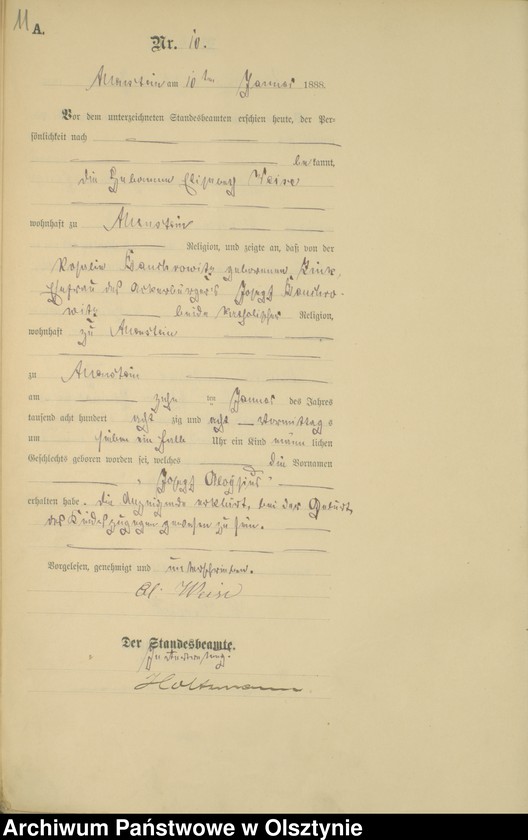 11
A.
Nr. 10.
Allenstein am 10 ten Januar 1888.
Vor dem unterzeichneten Standesbeamten erschien heute, der Per-
sönlichkeit nach
bekannt,
die Hebamme Elisabeth
wohnhaft zu Allenstein
Religion, und zeigte an, daß von der
Rosalie geborenen
Ehefrau des Ackerbürgers Joseph
beide katholischer Religion,
wohnhaft zu Allenstein
zu Allenstein
am zehn ten Januar des Jahres
tausend acht hundert acht zig und acht Vormittags
um sieben ein halb Uhr ein Kind männlichen
Geschlechts geboren worden sei, welches die Vornamen
"Joseph Aloysius"
erhalten habe. Die Anzeigende erklärt, bei der Geburt
des Kindes zugegen gewesen zu sein.
Vorgelesen, genehmigt und unterschrieben.
El. Weiß
Der Standesbeamte.
In Vertretung.
Holtzmann
Archiwum Państwowe w Olsztynie